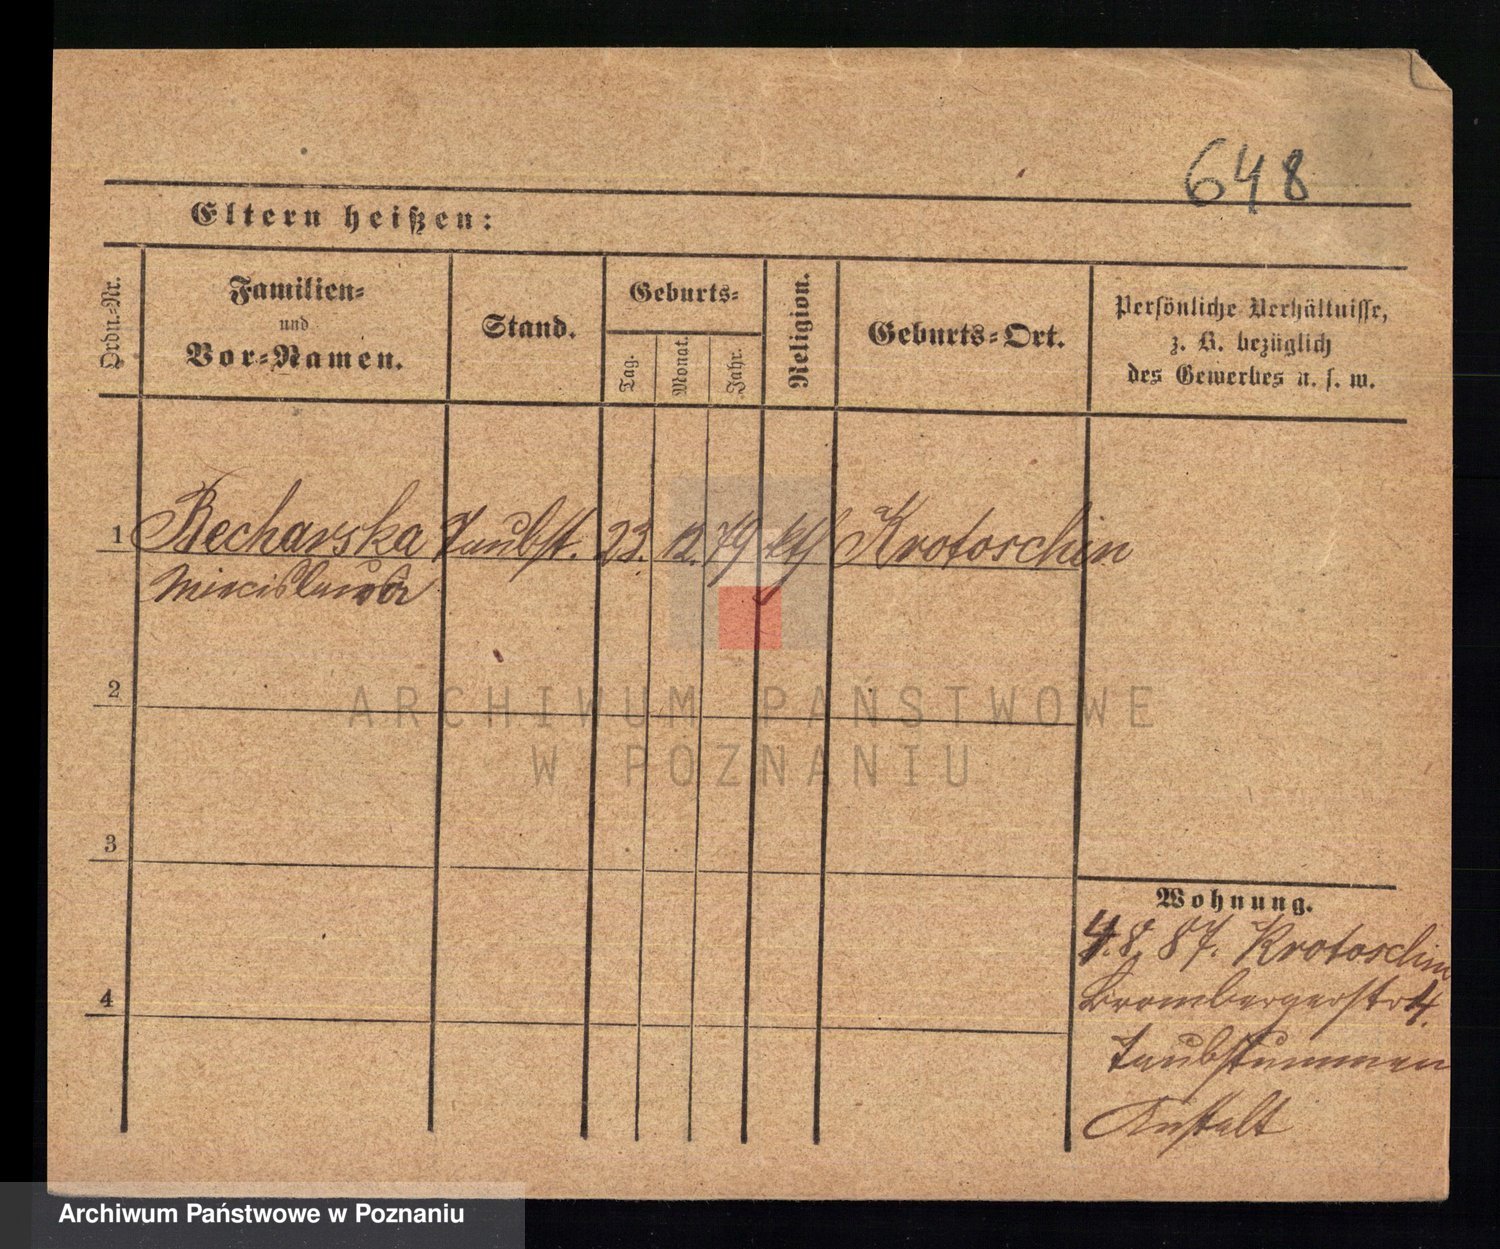 648
Eltern heißen:
Ordn.-Nr.
Familien-
und
Vor-Namen.
Stand.
Geburts-
Tag.
Monat.
Jahr.
Religion.
Geburts-Ort.
Persönliche Verhältnisse,
z. B. bezüglich
des Gewerbes u. s. w.
1 Becharska Taubst. 23. 12. 79 kth Krotoschin
Miecislawa
2
ARCHIWUM PAŃSTWOWE
W POZNANIU
3
Wohnung.
4.8.87. Krotoschin
Brombergerstr 4.
Taubstummen
Anstalt
4
Archiwum Państwowe w Poznaniu